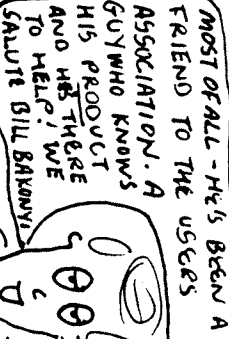 MOST OF ALL - HE'S BEEN A
FRIEND TO THE USERS
ASSOCIATION. A
GUY WHO KNOWS
HIS PRODUCT
AND HE'S THERE
TO HELP! WE
SALUTE BILL BAKONYI